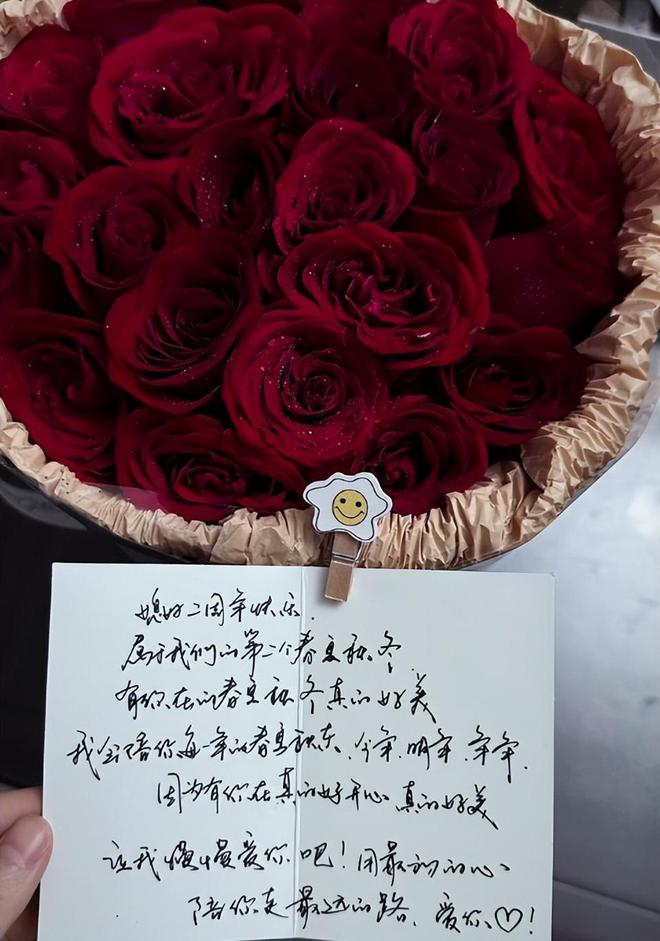 媳妇二周年快乐.
属于我们的第二个春夏秋冬.
有你在的春夏秋冬真的好美
我会陪你每一年的春夏秋冬、今年.明年.年年.
因为有你在真的好开心 真的好美
让我慢慢爱你吧!用最初的心、
陪你走最远的路、爱你♡!